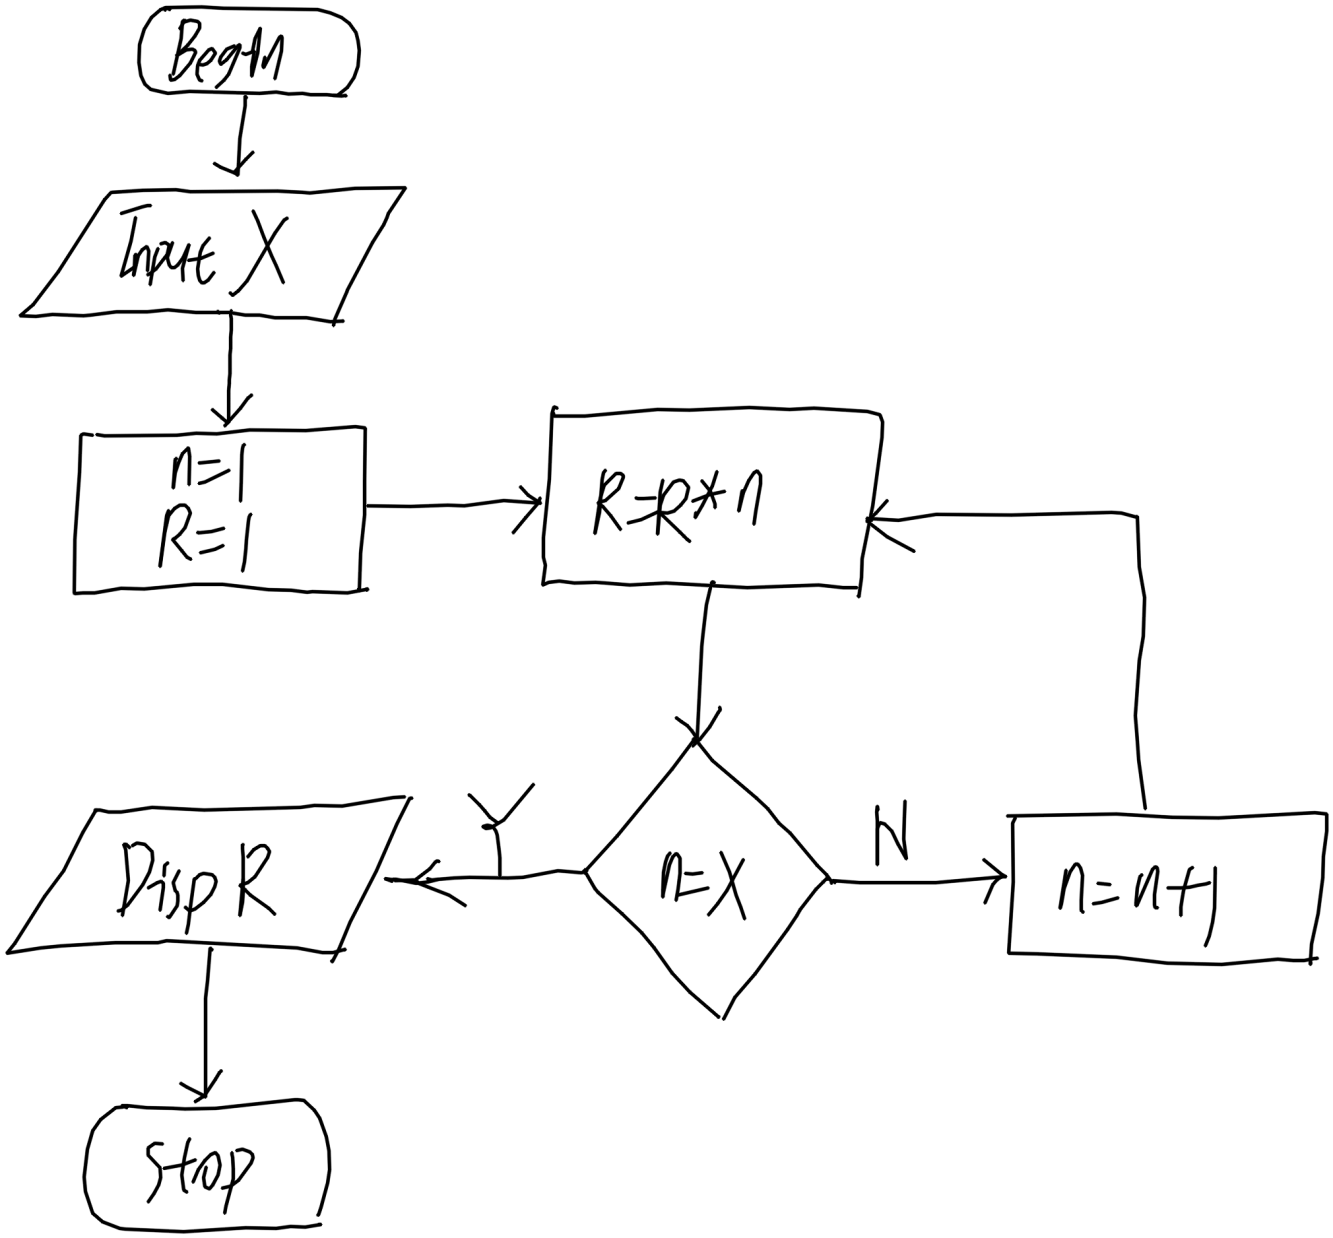 Begin
Input X
n=1
R=1
R=R*n
n=X
Y
N
n=n+1
Disp R
Stop